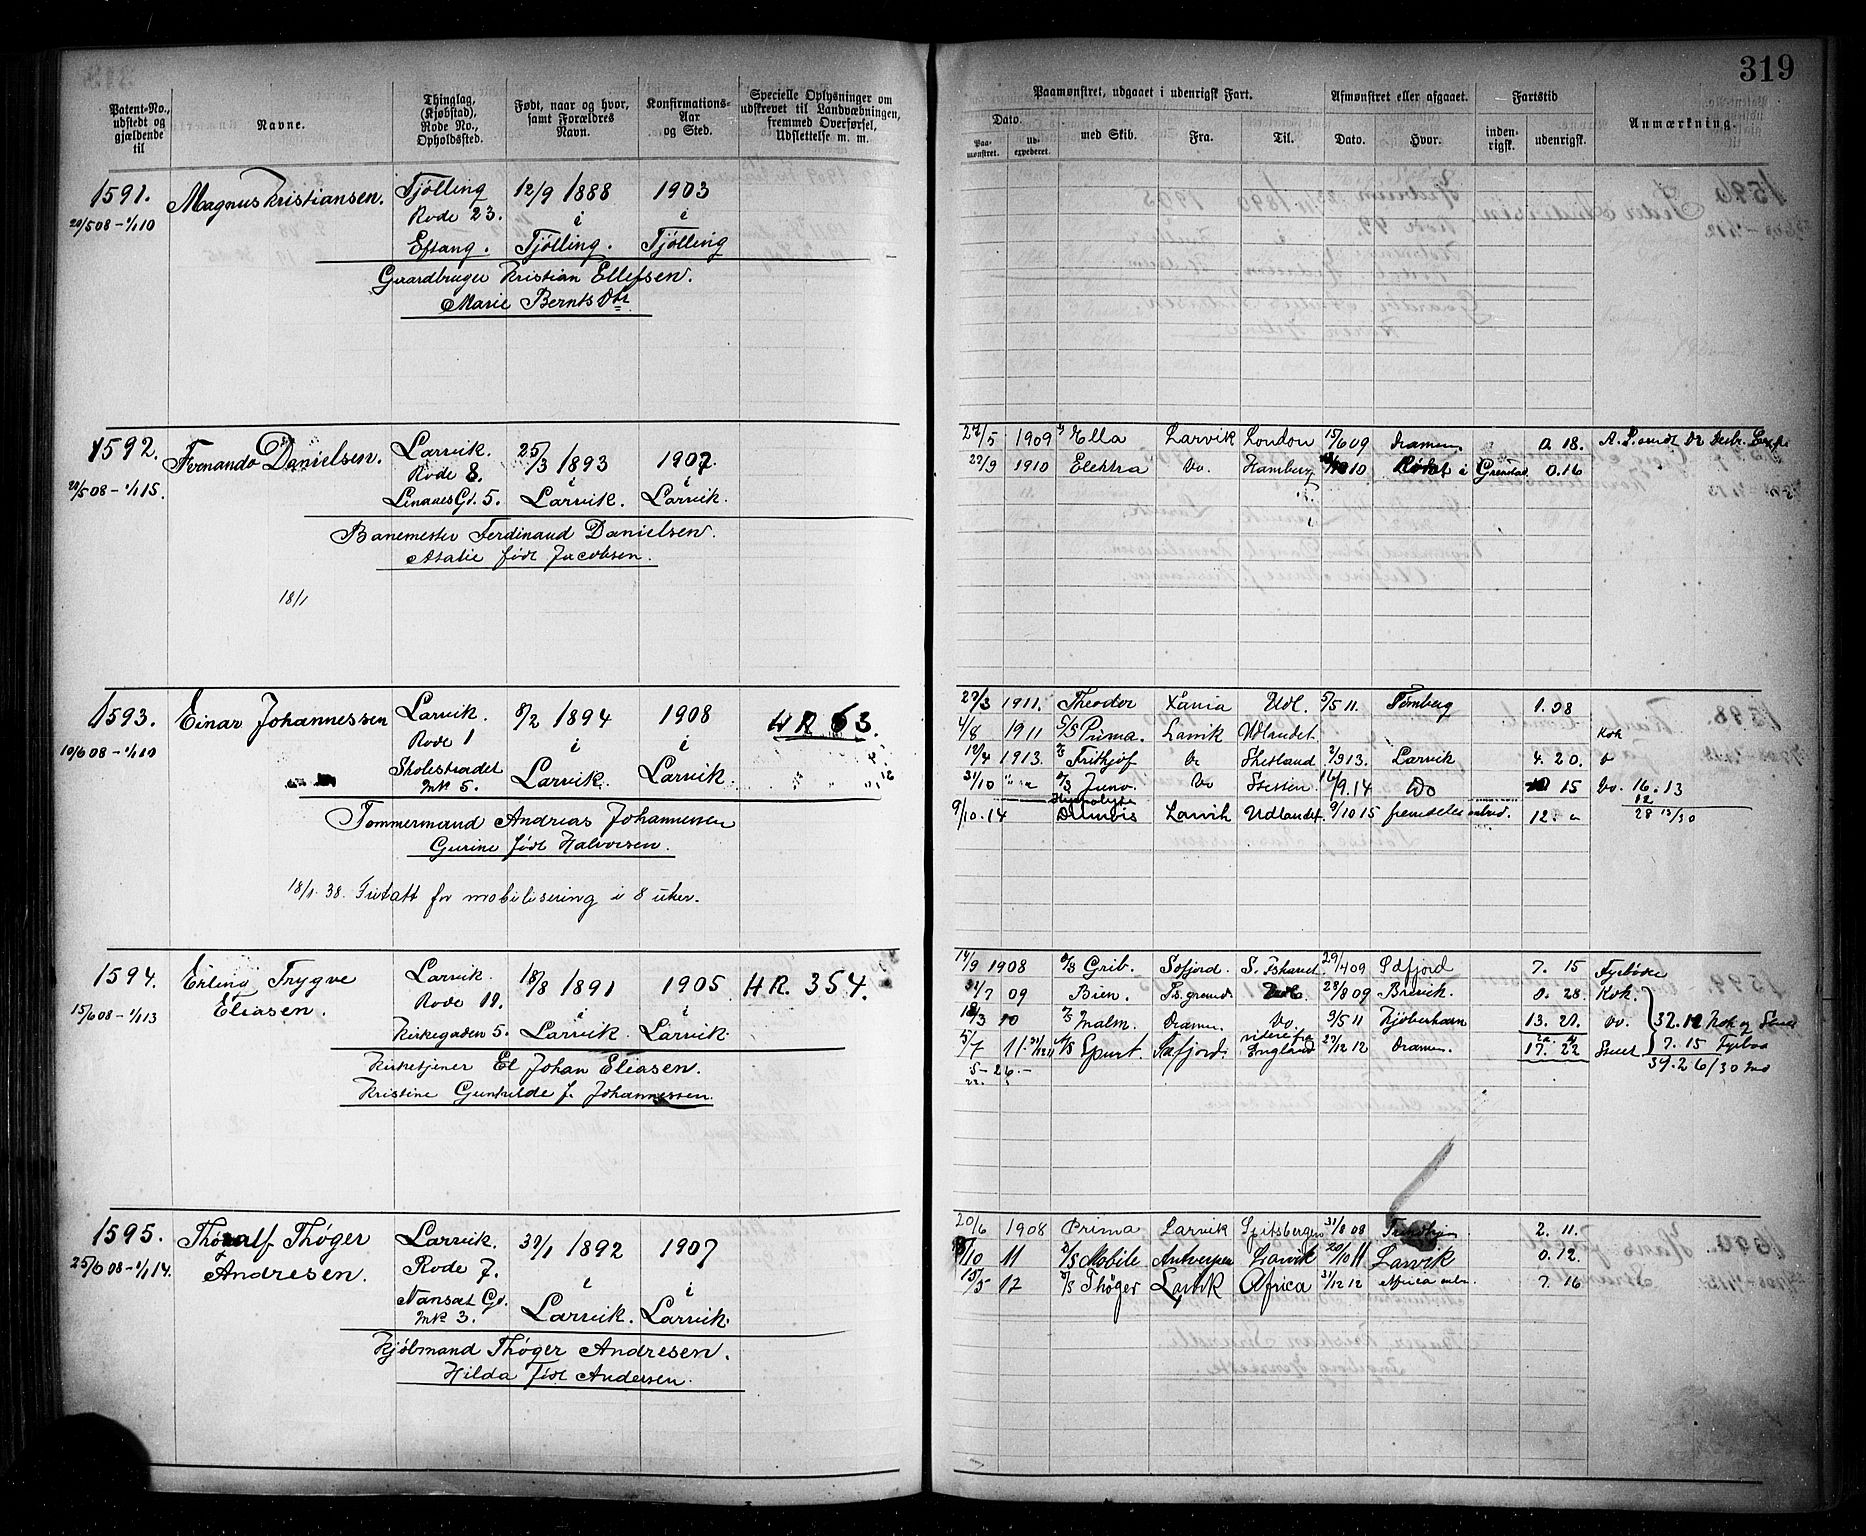 319
Patent-No., udstedt og gjældende til
Navne.
Thinglag, (Kjøbstad), Rode No., Opholdssted.
Født, naar og hvor, samt Forældres Navn.
Konfirmations-Aar og Sted.
Specielle Oplysninger om udskrevet til Landværbningen, fremmed Overførsel, Udslettelse m. m.
Paamønstret, udgaaet i udenrigsk Fart.
Dato.
Paa-mønstret.
Ud-expederet.
med Skib.
Fra.
Til.
Afmønstret eller afgaaet.
Dato.
Hvor.
Fartstid
inden-rigsk.
udenrigsk.
Anmærkning.
1591. Magnus Kristiansen. Tjølling 12/9 1888 1903
20/5 08 - 1/1 10 Rode 23. i i
Eftang. Tjølling. Tjølling
Gaardbruger Kristian Ellefsen.
Marie Bernts Dtr
1592. Fernando Danielsen. Larvik. 25/3 1893 1907.
20/5 08 - 1/1 15. Rode 8. i i
Linaaes Gd. 5. Larvik. Larvik.
Banemester Ferdinand Danielsen.
Atalie født Jacobsen.
18/1
27/5 1909 Ella Larvik London 15/6 09 Dramen 0 18.
27/9 1910 Elektra Do. Hamberg 10 i Grendal 0.16
1593. Einar Johannessen Larvik. 8/2 1894 1908 HR 63.
10/6 08 - 1/1 10 Rode 1 i i
Skolestradet Larvik. Larvik.
No 5.
Tømmermand Andreas Johannessen
Gurine født Halvorsen.
18/1. 38. Fritatt for mobilisering i 8 uker.
27/3 1911. Theodor Xania Udl. 5/5 11. Tønsberg 1. 08
4/8 1911 S/S Prima. Larvik Udlandet. Kok
12/4 1913. Frithjof Do Shetland 2/9 13. Larvik 4. 20.
31/10 Juno. Do Stettin. 16/9. 14 Do 15 Do. 16. 13
9/10. 14 Larvik Udlandet. 9/10 15 fremdeles ombord. 12. 28 13/30
1594. Erling Trygve Eliasen. Larvik. 18/8 1891 1905 HR. 354.
15/6 08 - 1/1 13 Rode 11. i i
Kirkegaden 5. Larvik. Larvik.
Kirketjener El Johan Eliasen.
Kristine Gunhilde f. Johannessen.
14/9 1908 Grib. S. Ishavet 29/4 09 7. 15 Fyrbøter
31/7 09 Bien. Udl. 28/8 09 Brevik. 0. 28. Kok.
18/3 10 Malm. Dramen. Do. 9/5 11 Kjøbenhavn 13. 21. Do. 32. 12 Kok og
5/7 11. Spurt. England 27/12 12 Dramen. 17. 22 7. 15
5 - 26. - 39. 26/30
1595. Thoralf Thøger Andresen. Larvik. 31/1 1892 1907
25/6 08 - 1/1 14. Rode 7. i i
Nansæt Gd. Larvik. Larvik.
No 3.
Kjøbmand Thøger Andresen.
Hilda født Andersen.
20/6 1908 Prima Larvik Spitsbergen 31/8 08 2. 11.
11 Mobile Antwerpen Larvik 20/10 11 Larvik 0. 12.
15/5 12 Thøger Larvik Africa 31/12 12 Africa 7. 16